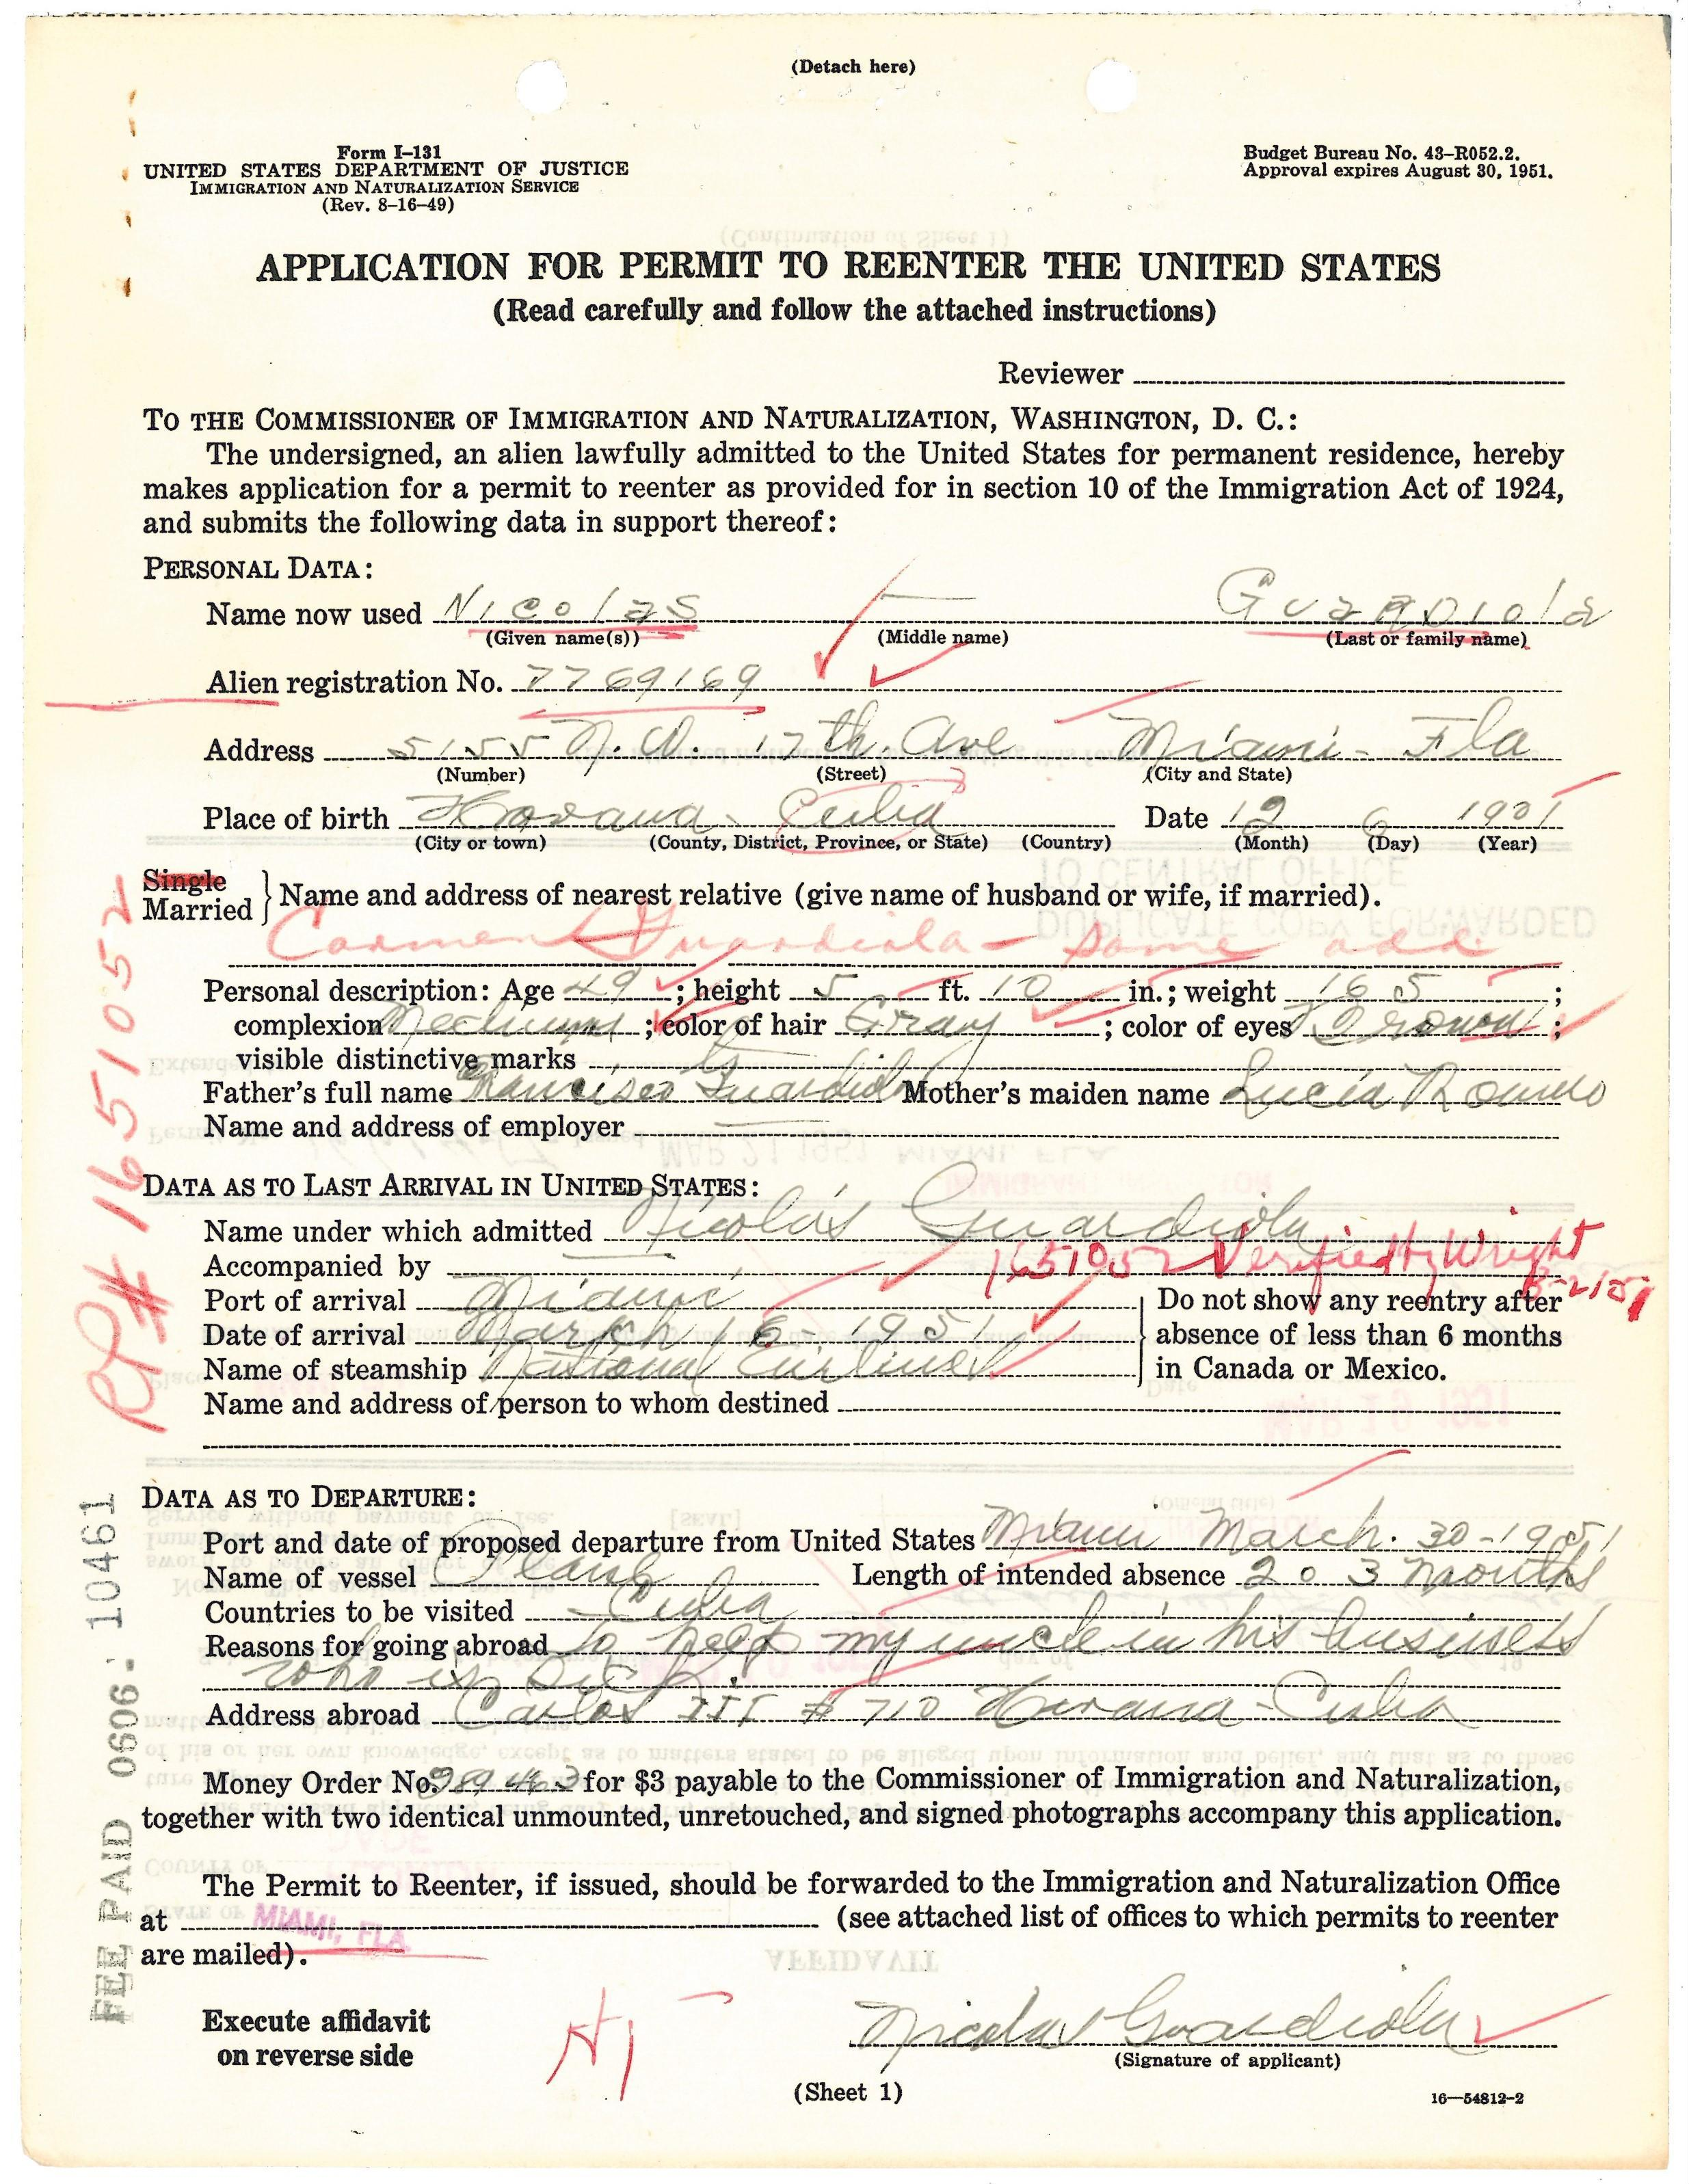 (Detach here)
Form I-131
UNITED STATES DEPARTMENT OF JUSTICE
IMMIGRATION AND NATURALIZATION SERVICE
(Rev. 8-16-49)
Budget Bureau No. 43-R052.2.
Approval expires August 30, 1951.
APPLICATION FOR PERMIT TO REENTER THE UNITED STATES
(Read carefully and follow the attached instructions)
Reviewer
TO THE COMMISSIONER OF IMMIGRATION AND NATURALIZATION, WASHINGTON, D. C.:
The undersigned, an alien lawfully admitted to the United States for permanent residence, hereby
makes application for a permit to reenter as provided for in section 10 of the Immigration Act of 1924,
and submits the following data in support thereof:
PERSONAL DATA:
Name now used Nicolas — Guardiola
(Given name(s)) (Middle name) (Last or family name)
Alien registration No. 7769169
Address 5155 N.W. 17th Ave Miami - Fla
(Number) (Street) (City and State)
Place of birth Havana - Cuba Date 12 6 1901
(City or town) (County, District, Province, or State) (Country) (Month) (Day) (Year)
Single
Married } Name and address of nearest relative (give name of husband or wife, if married).
Carmen Guardiola - same add
Personal description: Age 49; height 5 ft. 10 in.; weight 165;
complexion Medium; color of hair Gray; color of eyes Brown;
visible distinctive marks
Father's full name Francisco Guardiola Mother's maiden name Lucia Romero
Name and address of employer
DATA AS TO LAST ARRIVAL IN UNITED STATES:
Name under which admitted Nicolas Guardiola
Accompanied by 1651052 Verified Wright
Port of arrival Miami
Date of arrival March 6 - 1951
Name of steamship National Airlines
Do not show any reentry after
absence of less than 6 months
in Canada or Mexico.
Name and address of person to whom destined
DATA AS TO DEPARTURE:
Port and date of proposed departure from United States Miami March. 30-1951
Name of vessel Plane Length of intended absence 2 o 3 months
Countries to be visited Cuba
Reasons for going abroad to help my uncle in his business
who is sick.
Address abroad Carlos III # 710 Havana - Cuba
Money Order No. 989463 for $3 payable to the Commissioner of Immigration and Naturalization,
together with two identical unmounted, unretouched, and signed photographs accompany this application.
The Permit to Reenter, if issued, should be forwarded to the Immigration and Naturalization Office
at MIAMI, FLA. (see attached list of offices to which permits to reenter
are mailed).
Execute affidavit
on reverse side
Nicolas Guardiola
(Signature of applicant)
(Sheet 1)
16—54812-2
RP# 1651052
FEE PAID 0606- 10461